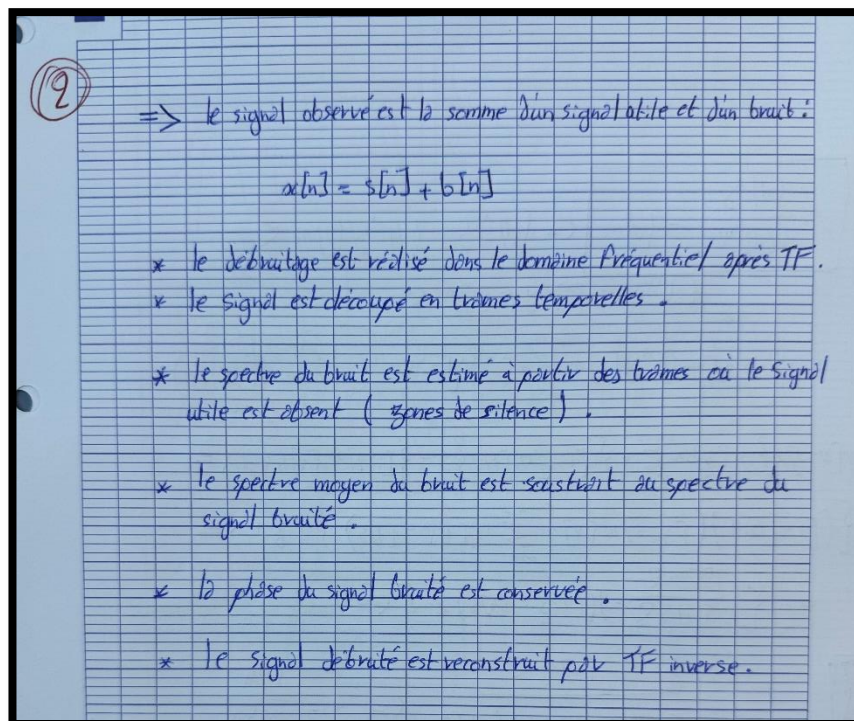 2
=> le signal observé est la somme d'un signal utile et d'un bruit :
x[n] = s[n] + b[n]
* le débruitage est réalisé dans le domaine fréquentiel après TF.
* le signal est découpé en trames temporelles.
* le spectre du bruit est estimé à partir des trames où le signal
utile est absent ( zones de silence ).
* le spectre moyen du bruit est soustrait au spectre du
signal bruité.
* la phase du signal bruité est conservée.
* le signal débruité est reconstruit par TF inverse.